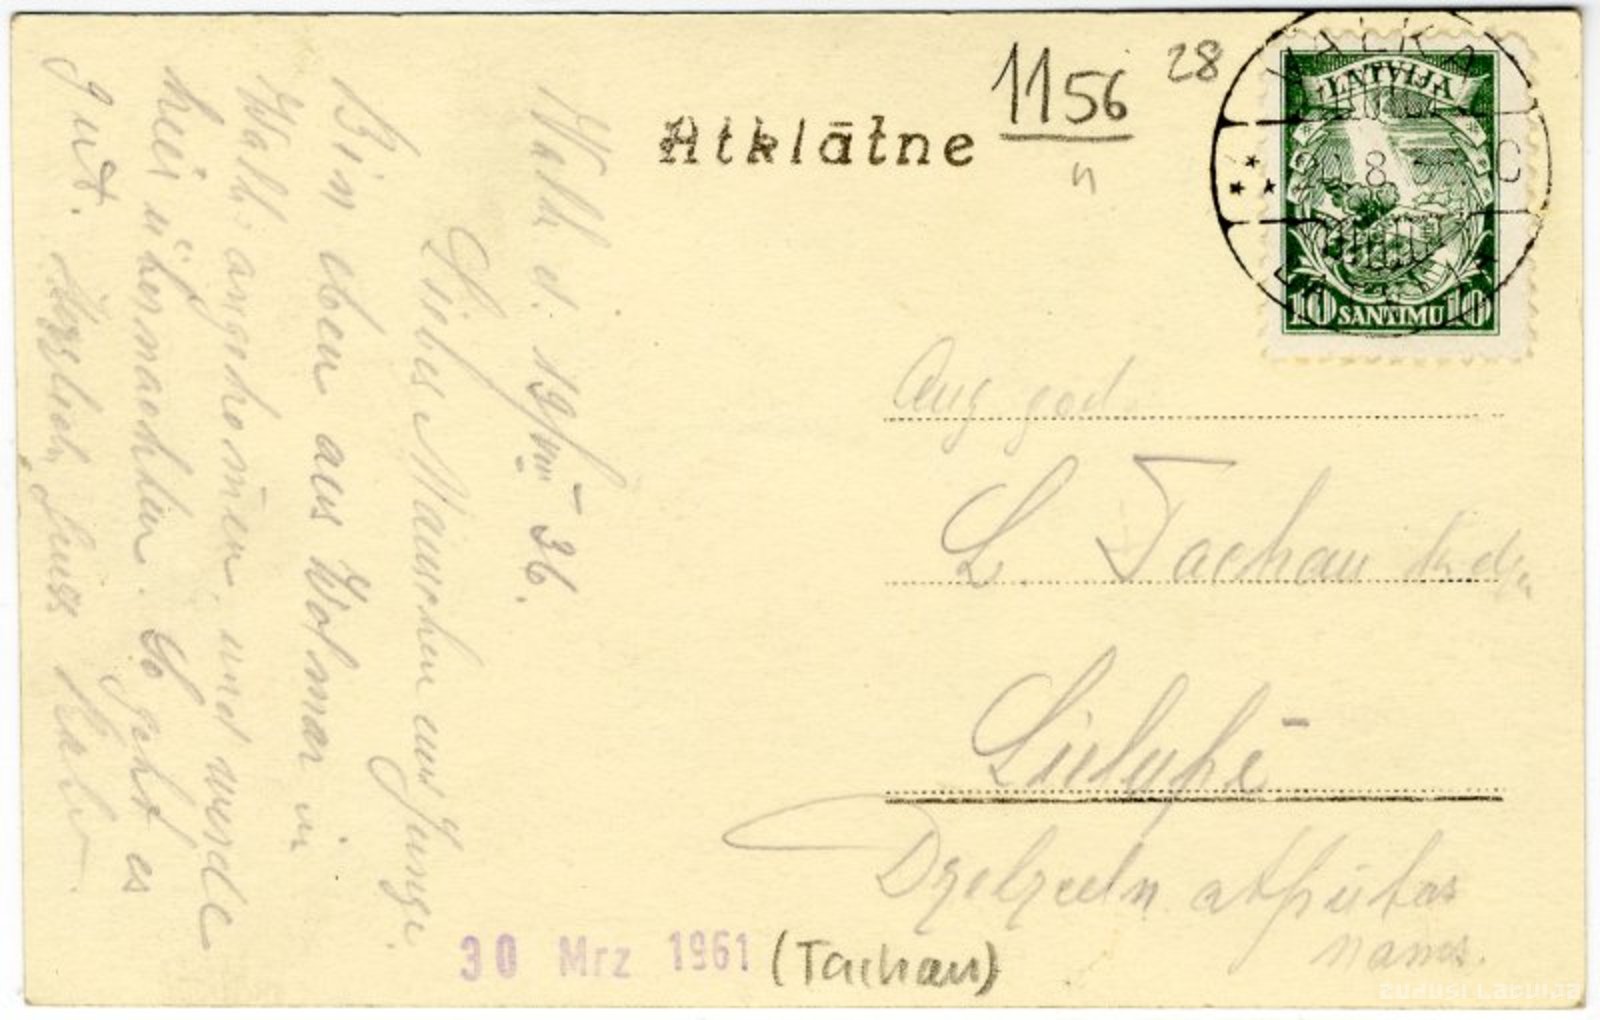 Atklātne
1156
28
VALKA
LATVIJA
8
C
10 SANTIMU 10
Walk d. 19/VIII 36.
Liebes Mäuschen und Junge.
Bin eben aus Wolmar in
Walk angekom̄en, und werde
hier übernachten. Es geht es
gut. Herzlich Gruss
Aug god.
L. Tachau kdze
Lielupē
Dzelzceļn atpūtas
nams.
30 Mrz 1961
(Tachau)
zudusi Latvija